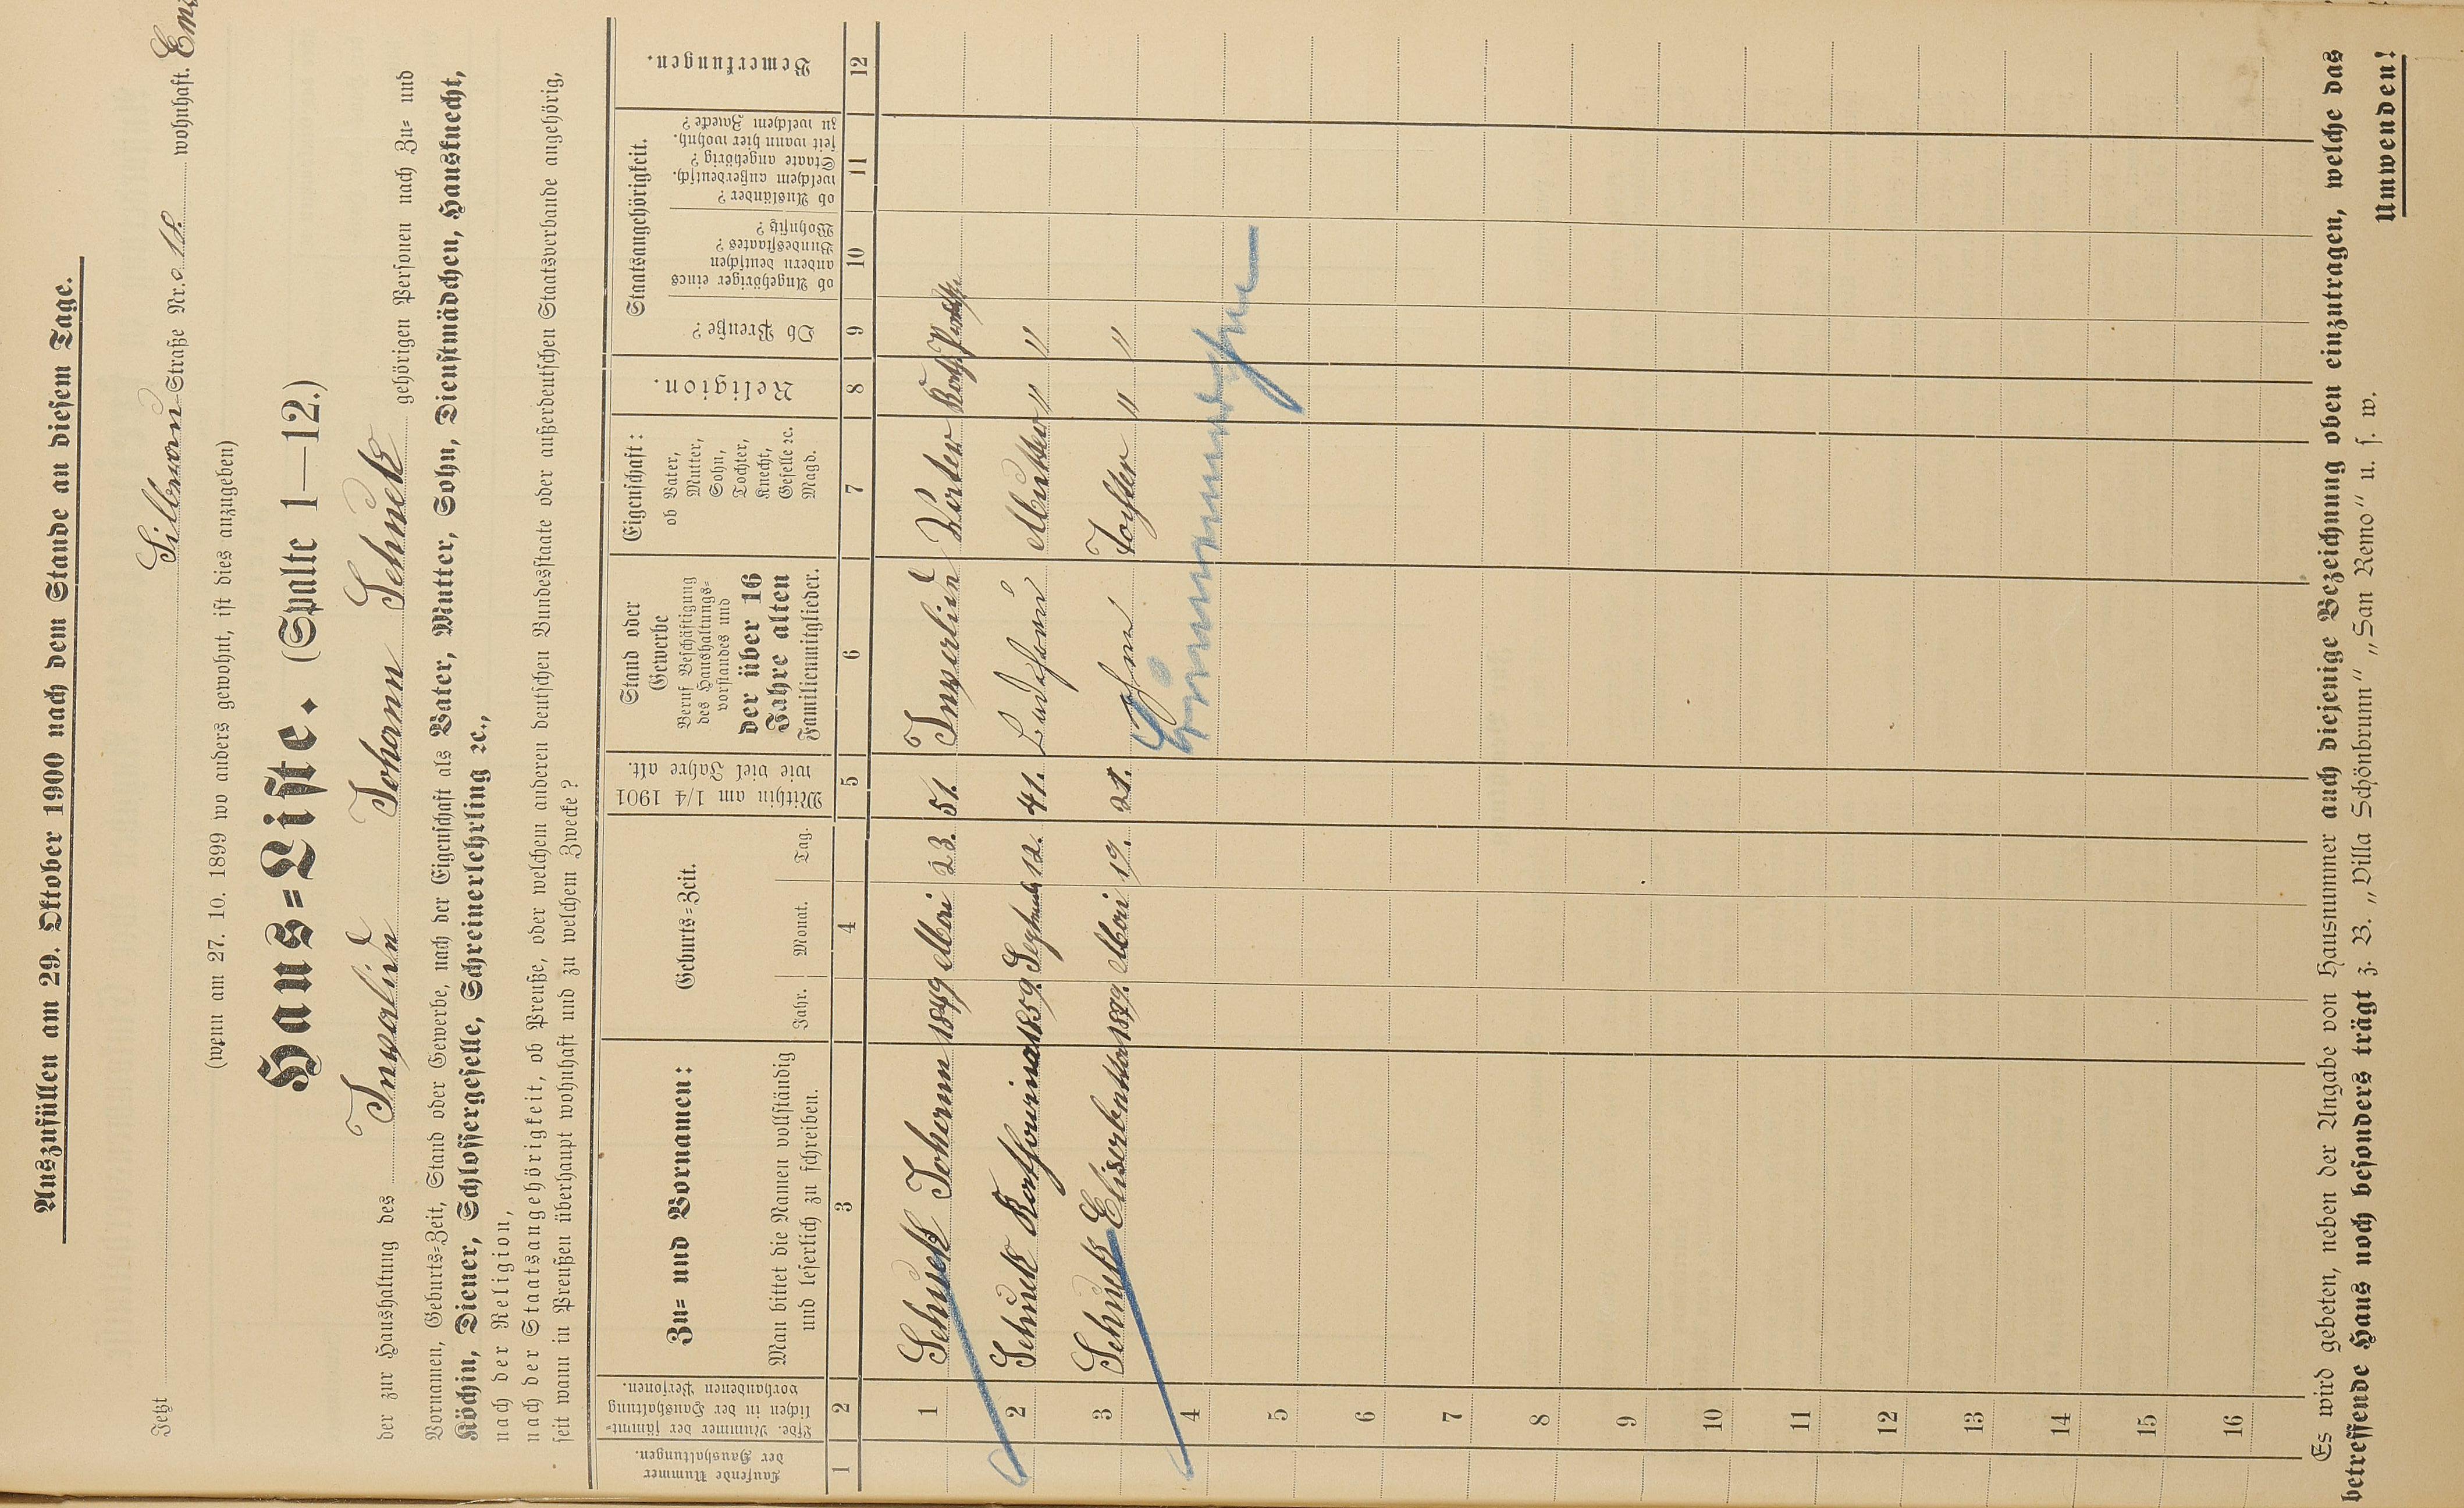 Auszufüllen am 29. Oktober 1900 nach dem Stande an diesem Tage.
Jetzt Silberau Straße Nr. 18. wohnhaft.
(wenn am 27. 10. 1899 wo anders gewohnt, ist dies anzugeben)
Haus=Liste. (Spalte 1—12.)
der zur Haushaltung des Invalide Johann Schuck gehörigen Personen nach Zu= und
Vornamen, Geburts=Zeit, Stand oder Gewerbe, nach der Eigenschaft als Vater, Mutter, Sohn, Dienstmädchen, Hausknecht,
Köchin, Diener, Schlossergeselle, Schreinerlehrling ꝛc.,
nach der Religion,
nach der Staatsangehörigkeit, ob Preuße, oder welchem anderen deutschen Bundesstaate oder außerdeutschen Staatsverbande angehörig,
seit wann in Preußen überhaupt wohnhaft und zu welchem Zwecke?
Laufende Nummer der Haushaltungen.
Lfde. Nummer der sämmtlichen in der Haushaltung vorhandenen Personen.
Zu= und Vornamen:
Man bittet die Namen vollständig
und leserlich zu schreiben.
Geburts=Zeit.
Jahr. Monat. Tag.
Mithin am 1/4 1901
wie viel Jahre alt.
Stand oder
Gewerbe
Beruf Beschäftigung
des Haushaltungs=
vorstandes und
der über 16
Jahre alten
Familienmitglieder.
Eigenschaft:
ob Vater,
Mutter,
Sohn,
Tochter,
Knecht,
Geselle ꝛc.
Magd.
Religion.
Staatsangehörigkeit.
Ob Preuße?
ob Angehöriger eines
andern deutschen
Bundesstaates?
Wohnsitz?
ob Ausländer?
welchem außerdeutsch.
Staate angehörig?
seit wann hier wohnh.
zu welchem Zwecke?
Bemerkungen.
1 2 3 4 5 6 7 8 9 10 11 12
1 Schuck Johann 1849 Mai 23. 51. Invalide Vater Kath.
2 Schuck Katharina 1859. September 12. 41. Mutter " "
3 Schuck Elisabetha 1879. Mai 19. 21. Ohne Tochter " "
4
5
6
7
8
9
10
11
12
13
14
15
16
Es wird gebeten, neben der Angabe von Hausnummer auch diejenige Bezeichnung oben einzutragen, welche das
betreffende Haus noch besonders trägt z. B. „Villa Schönbrunn" „San Remo" u. s. w.
Umwenden!